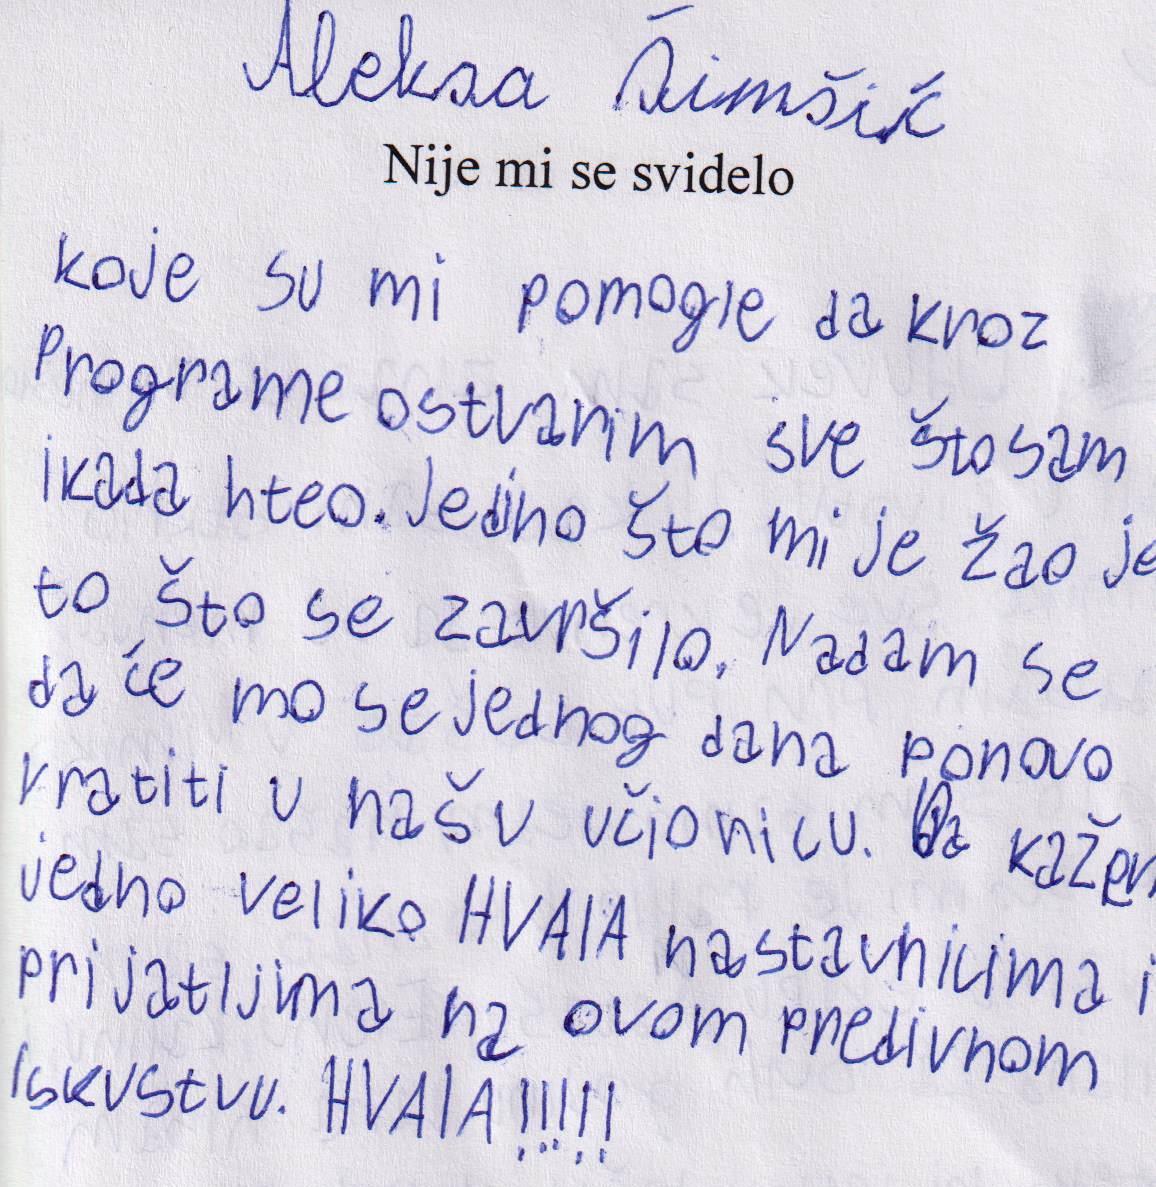 Aleksa Šimšić
Nije mi se svidelo
koje su mi pomogle da kroz
Programe ostvarim sve što sam
ikada hteo. Jedino što mi je žao je
to što se završilo. Nadam se
da će mo se jednog dana ponovo
vratiti u našu učionicu. Da kažem
jedno veliko HVALA nastavnicima i
prijatljima na ovom predivnom
Iskustvu. HVALA!!!!!